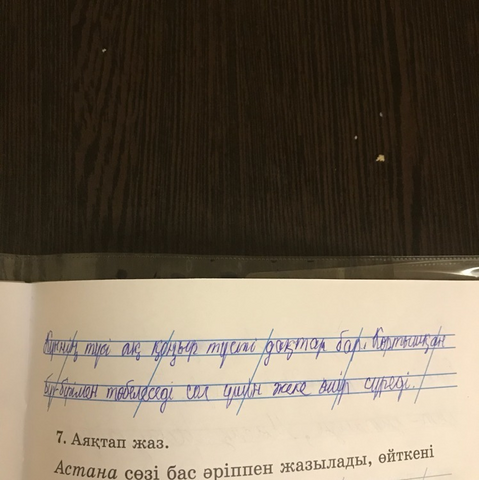 түсі ақ қоңыр түсті дақтар бар. Көртышқан
бір-бірімен төбелеседі сол үшін жеке өмір сүреді.
7. Аяқтап жаз.
Астана сөзі бас әріппен жазылады, өйткені